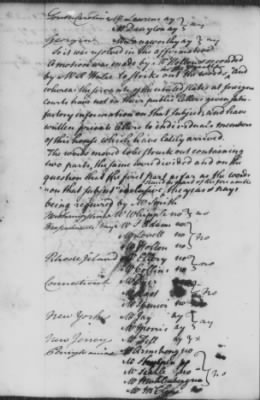 South Carolina Mr Laurens ay
Mr Drayton ay } ay
Georgia Mr Langworthy ay }
So it was resolved in the affirmative
A motion was made by Mr Holten seconded
by Mr to strike out the words, and
whereas the of the united States at foreign
Courts have not in their public letters given satis-
factory information on that subject, and have
written private letters to individuals members
of this house which have lately arrived.
The words moved to be struck out containing
two parts, the same were divided and on the
question that the first part as far as the words
"on that subject" inclusive, the yeas & nays
being required by Mr Smith
Newhampshire Mr Whipple no } no
Massachusetts Bay Mr S Adams no
Mr Lovell no } no
Mr Holten no
Rhode Island Mr Ellery no } no
Mr Collins no
Connecticut Mr Dyer
Mr Root } no
Mr Spencer no
New York Mr Jay ay } ay
Mr Morris ay
New Jersey Mr Fell ay } ay
Pennsylvania Mr Armstrong no
Mr Shippen
Mr Searle no } no
Mr Muhlenberg no
Mr McClene